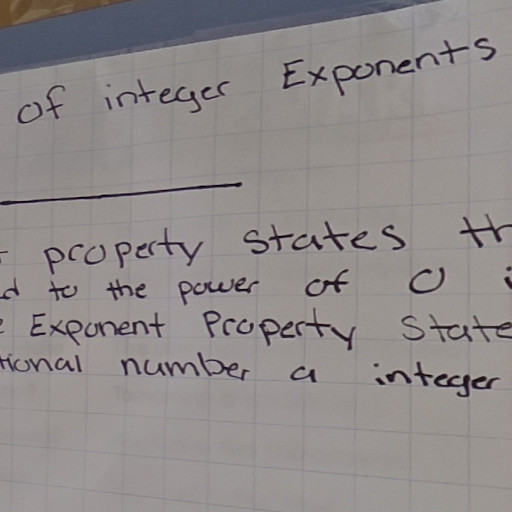 of integer Exponents
property states
to the power of 0
Exponent Property State
number a integer